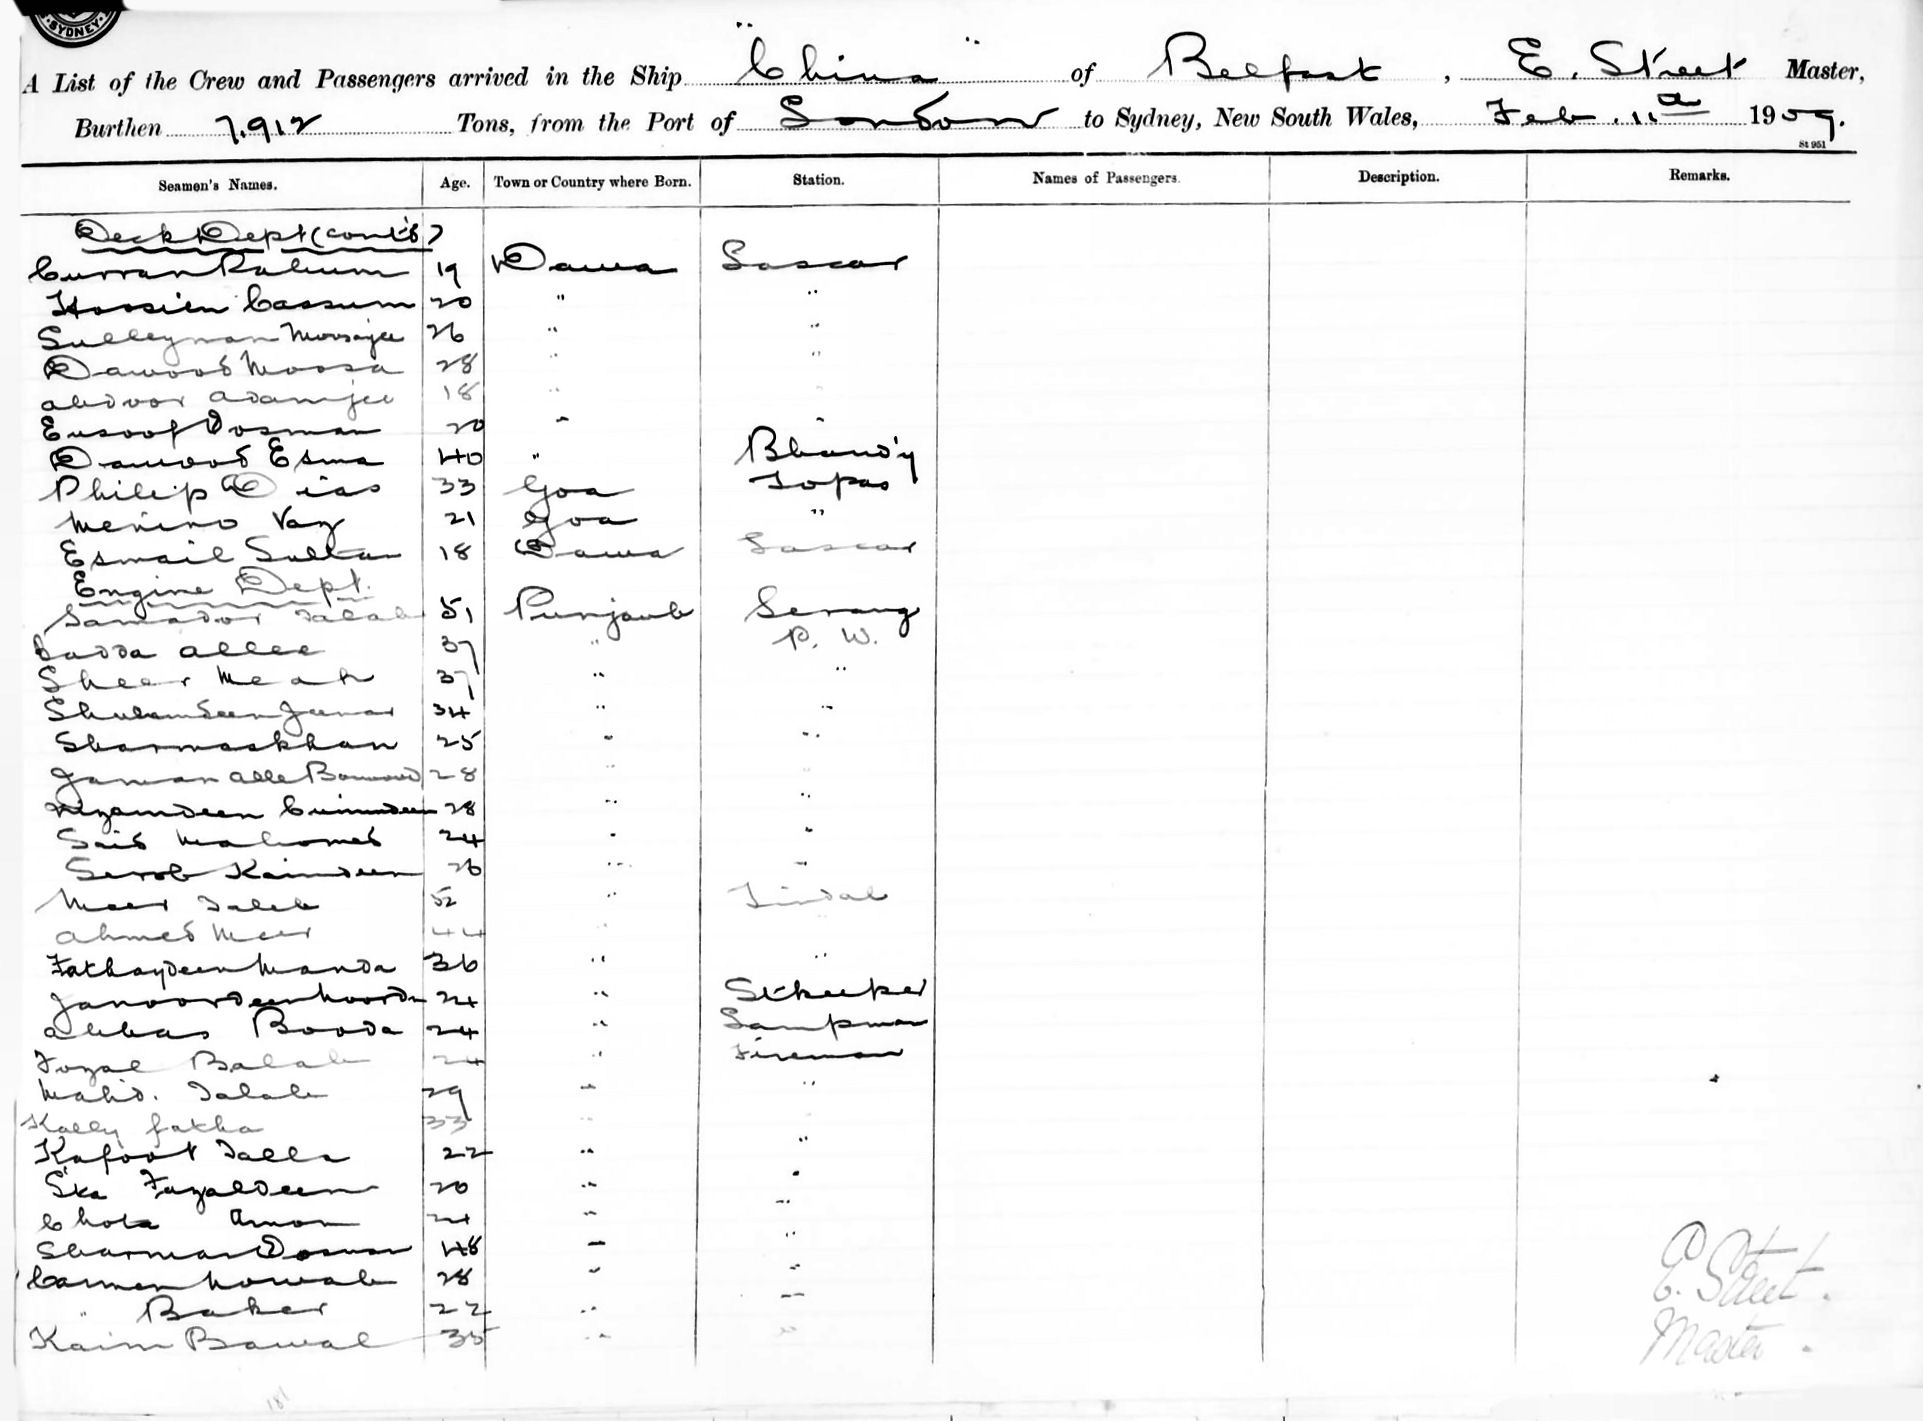 SYDNEY
A List of the Crew and Passengers arrived in the Ship "China" of Belfast, E. Street Master,
Burthen 7,912 Tons, from the Port of London to Sydney, New South Wales, Feb. 11th 1909.
St 951
Seamen's Names. Age. Town or Country where Born. Station. Names of Passengers. Description. Remarks.
Deck Dept (cont'd)
Curran Rahim 19 Dawa Lascar
Hossien Cassum 20 " "
Sulleyman Moosajee 26 " "
Dawood Moosa 28 " "
Abdoor Adamjee 18 " "
Eusoof Dosman 20 " "
Dawood Esma 40 " Bhand'y
Philip Dias 33 Goa Topas
Menino Vaz 21 Goa "
Esmail Sultan 18 Dawa Lascar
Engine Dept.
Samador Talab 51 Punjaub Serang
Dadda Allee 37 " P. W.
Sheer Meah 37 " "
34 " "
Sharmaskhan 25 " "
Jaman Alle 28 " "
Nizamdeen 28 " "
Said Mahomed 24 " "
Serob Kaimdeen 26 " "
Meer Taleb 52 " Tindal
Ahmed Meer 44 "
Fathaydeen Manda 36 " "
Janoordeen Noordn 24 " St'keeper
Abbas Booda 24 " Lampman
Fozal Balab 24 " Fireman
Mahd. Talab 29 " "
Kally fatha 33 "
Kafoot Talla 22 " "
Ska Fazaldeen 20 " "
Chota Amon 24 " "
Sharman Dosman 48 " "
Carmen Nowab 28 " "
" Baker 22 " "
Kaim Bawal 35 " "
E. Street.
Master.